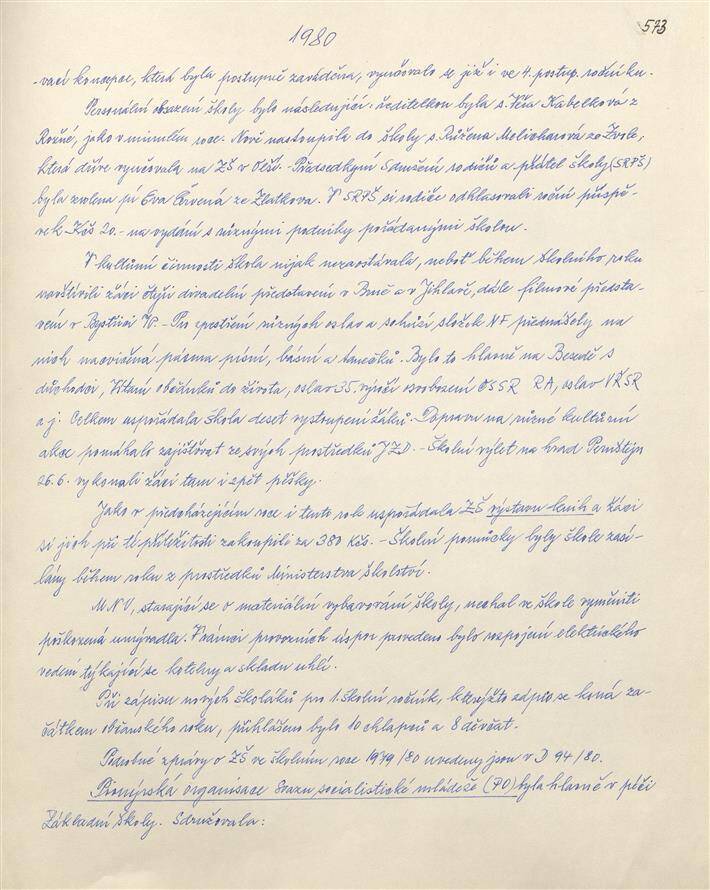 1980
573
-vací koncepce, která byla postupně zaváděna, vyučovalo se již i ve 4. postup. ročníku.
Personální obsazení školy bylo následující: ředitelkou byla s. Věra Kabelková z
Rožné, jako v minulém roce. Nově nastoupila do školy s. Růžena Melicharová ze Zvole,
která dříve vyučovala na ZŠ v Olší. - Předsedkyní Sdružení rodičů a přátel školy (SRPŠ)
byla zvolena pí Eva Červená ze Zlatkova. V SRPŠ si rodiče odhlasovali roční příspě-
vek Kčs 20.- na vydání s různými podniky pořádanými školou.
V kulturní činnosti škola nijak nezaostávala, neboť během školního roku
navštívili žáci čtyři divadelní představení v Brně a v Jihlavě, dále filmové předsta-
vení v Bystřici n/P. - Pro zpestření různých oslav a schůzí složek NF přednášely na
nich nacvičená pásma písní, básní a tanečků. Bylo to hlavně na Besedě s
důchodci, Vítání občánků do života, oslav 35. výročí osvobození ČSSR RA, oslav VŘSR
a j. Celkem uspořádala škola deset vystoupení žáků. - Dopravu na různé kulturní
akce pomáhalo zajišťovat ze svých prostředků JZD. - Školní výlet na hrad Pernštejn
26.6. vykonali žáci tam i zpět pěšky.
Jako v předcházejícím roce i tento rok uspořádala ZŠ výstavu knih a žáci
si jich při té příležitosti zakoupili za 380 Kčs. - Školní pomůcky byly škole zasí-
lány během roku z prostředků Ministerstva školství.
MNV, starající se o materiální vybavování školy, nechal ve škole vyměniti
poškozená umyvadla. V rámci provozních úspor provedeno bylo rozpojení elektrického
vedení týkající se kotelny a skladu uhlí.
Při zápisu nových školáků pro 1. školní ročník, kterýžto zápis se koná za-
čátkem občanského roku, přihlášeno bylo 10 chlapců a 8 děvčat.
Podrobné zprávy o ZŠ ve školním roce 1979/80 uvedeny jsou v D 94/80.
Pionýrská organisace Svazu socialistické mládeže (PO) byla hlavně v péči
Základní školy. Sdružovala: